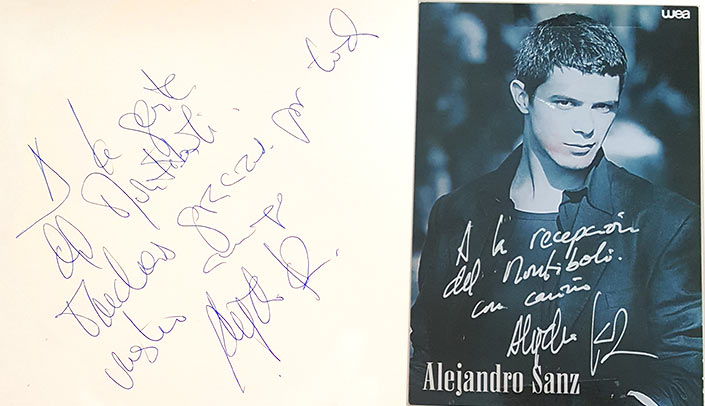 A la gente
del Montiboli.
Muchas gracias por
vuestro
wea
A la recepción
del Montiboli.
con cariño
Alejandro Sanz